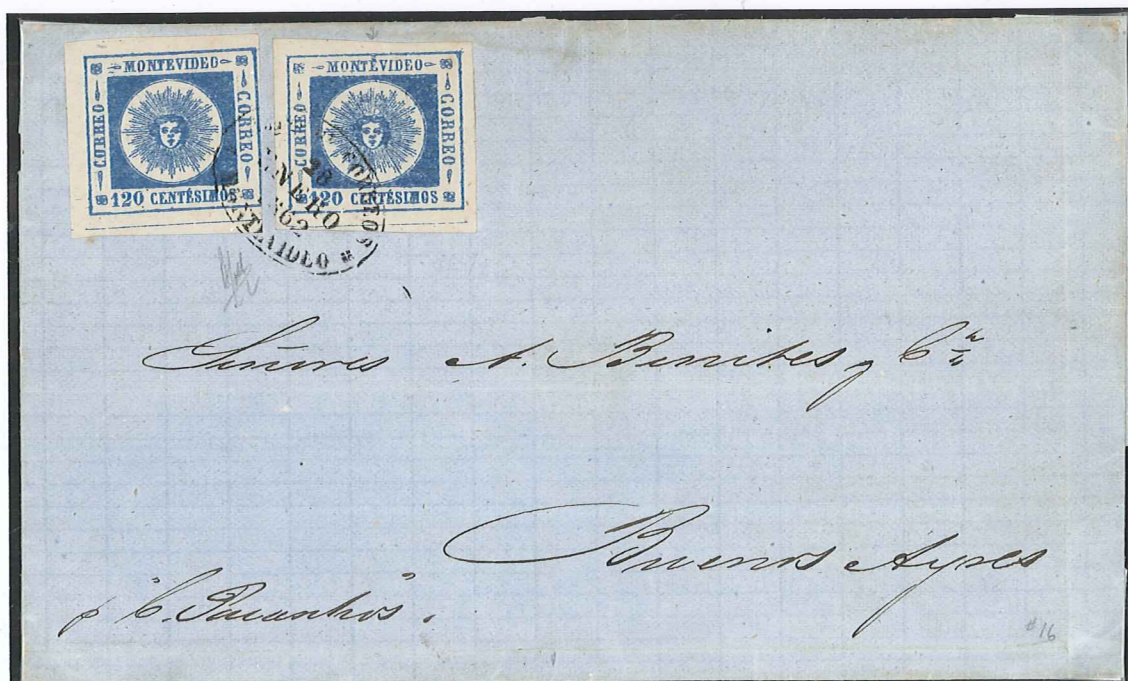 MONTEVIDEO
CORREO
CORREO
120 CENTÉSIMOS
MONTEVIDEO
CORREO
CORREO
120 CENTÉSIMOS
CORREOS
28
ENERO
1862
MONTEVIDEO
Señores A. Benites y Cª
Buenos Ayres
p "C. Paranhos".
#16